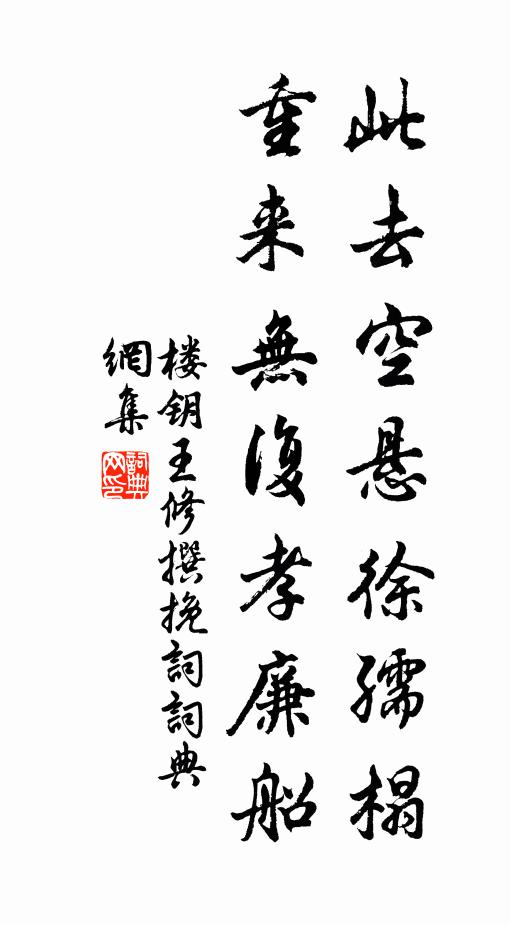 此去空悬徐孺榻
重来無復孝廉船
楼钥王修撰挽詞詞典
網集
詞典網印